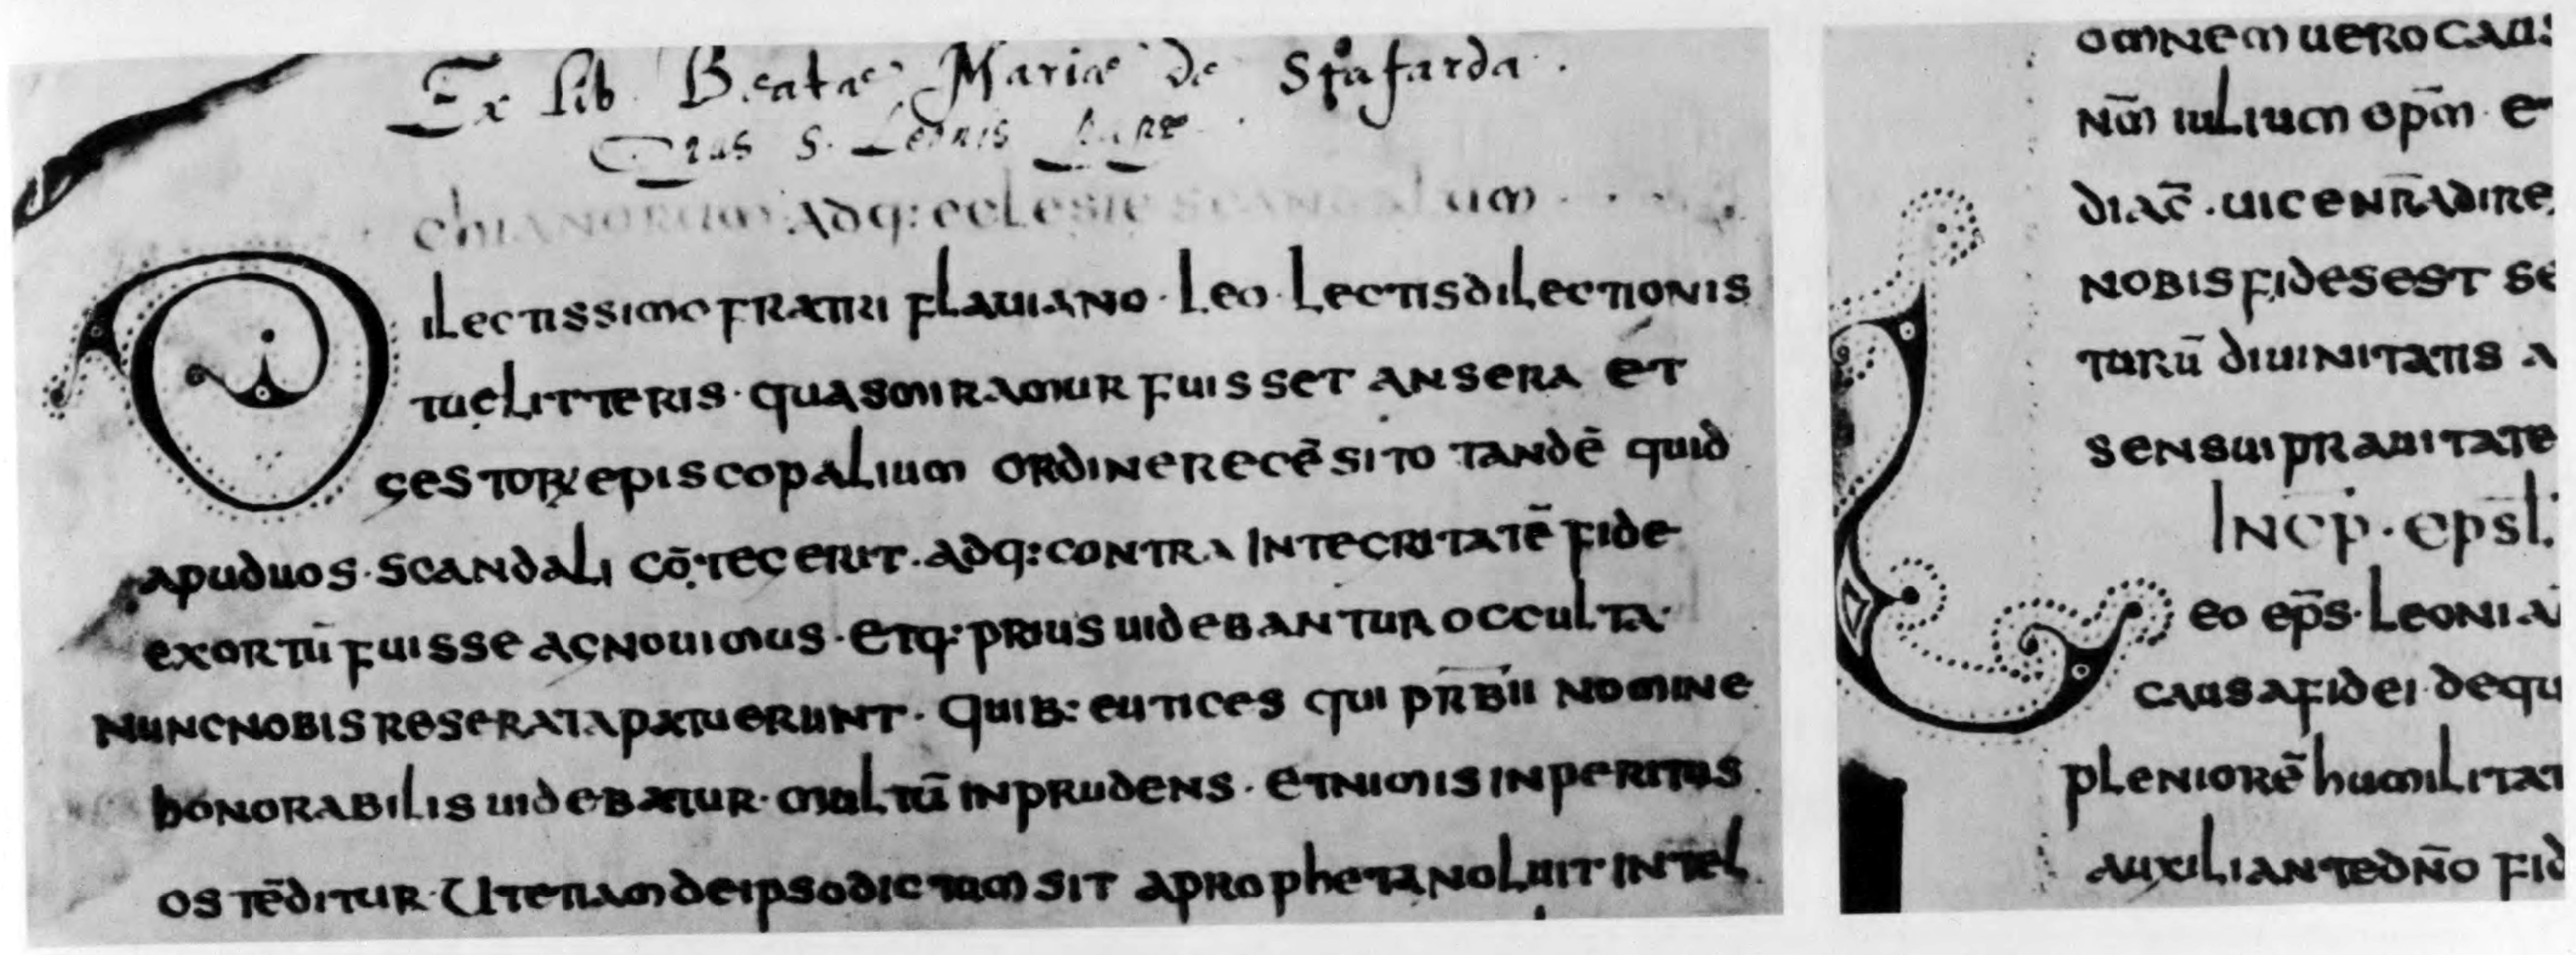 Ex lib Beatae Mariae de Stafarda.
S. Leonis
chianorum adq: eclesie um
Dilectissimo fratri flauiano · leo · lectis dilectionis
tue litteris · quas miramur fuisset ansera et
gestorꝝ episcopalium ordine recēsito tandē quid
apud uos · scandali cōtegerit · adq: contra integritatē fide
exortū fuisse agnouimus · et q: prius uidebantur occulta ·
nunc nobis reserata patuerunt · quib: eutices qui pr̄bii nomine
honorabilis uidebatur · multū inprudens · et nimis inperitus
ostēditur · Ut etiam de ipso dictum sit a propheta noluit intel
omnem uero caus
nm̄ iulium ep̄m · e
diac̄ · uicen r̄adire
nobis fides est se
turū diuinitatis a
sensui prauitate
Incp̄ · eps̄l
Leo ep̄s · leoni a
causa fidei · de qu
pleniorē humilitat
auxiliante dn̄o fid